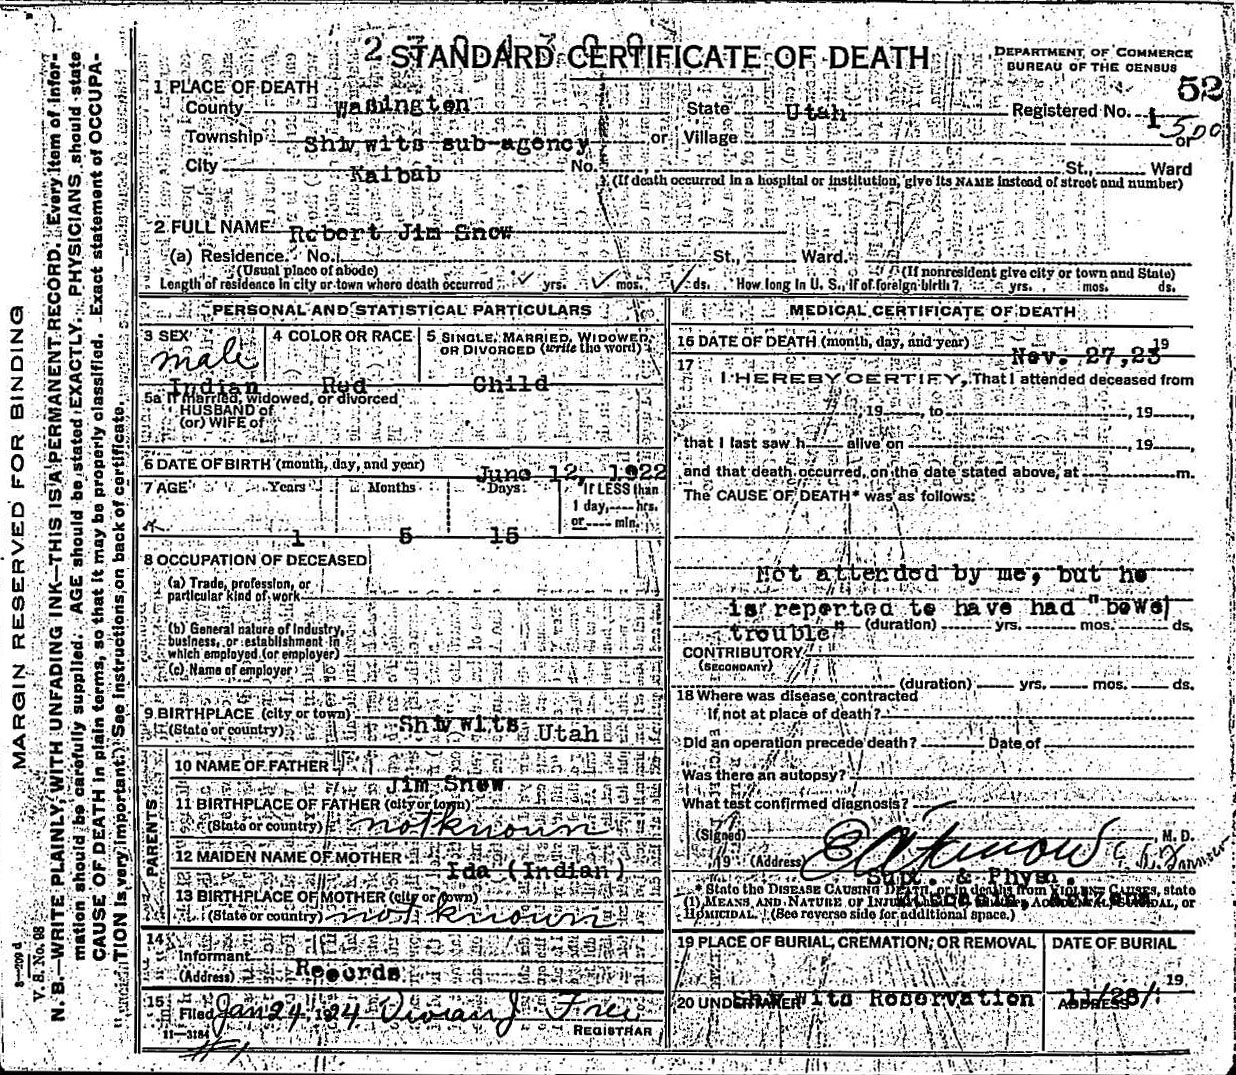 STANDARD CERTIFICATE OF DEATH
DEPARTMENT OF COMMERCE
BUREAU OF THE CENSUS
52
1 PLACE OF DEATH
County Washington State Utah Registered No. 1
500
Township Shivwits sub-agency or Village or
City Kaibab No. St., Ward
(If death occurred in a hospital or institution, give its NAME instead of street and number)
2 FULL NAME Robert Jim Snow
(a) Residence. No. St., Ward.
(Usual place of abode) (If nonresident give city or town and State)
Length of residence in city or town where death occurred yrs. mos. ds. How long in U. S., if of foreign birth? yrs. mos. ds.
PERSONAL AND STATISTICAL PARTICULARS
3 SEX 4 COLOR OR RACE 5 SINGLE, MARRIED, WIDOWED, OR DIVORCED (write the word)
male
Indian Red Child
5a If married, widowed, or divorced
HUSBAND of
(or) WIFE of
6 DATE OF BIRTH (month, day, and year) June 12, 1922
7 AGE Years Months Days If LESS than
1 day, hrs.
or min.
1 5 15
8 OCCUPATION OF DECEASED
(a) Trade, profession, or
particular kind of work
(b) General nature of industry,
business, or establishment in
which employed (or employer)
(c) Name of employer
9 BIRTHPLACE (city or town) Shivwits Utah
(State or country)
PARENTS
10 NAME OF FATHER Jim Snow
11 BIRTHPLACE OF FATHER (city or town)
(State or country) not known
12 MAIDEN NAME OF MOTHER Ida (Indian)
13 BIRTHPLACE OF MOTHER (city or town)
(State or country) not known
14
Informant Records
(Address)
15
Filed Jan 24, 1924 Vivian J Frei
REGISTRAR
11—3184
#1
MEDICAL CERTIFICATE OF DEATH
16 DATE OF DEATH (month, day, and year) Nov. 27,23 19
17
I HEREBY CERTIFY, That I attended deceased from
, 19 , to , 19 ,
that I last saw h alive on , 19 ,
and that death occurred, on the date stated above, at m.
The CAUSE OF DEATH* was as follows:
Not attended by me, but he
is reported to have had "bowel
trouble" (duration) yrs. mos. ds.
CONTRIBUTORY
(SECONDARY)
(duration) yrs. mos. ds.
18 Where was disease contracted
if not at place of death?
Did an operation precede death? Date of
Was there an autopsy?
What test confirmed diagnosis?
(Signed) , M. D.
, 19 (Address)
Supt. & Physn.
* State the DISEASE CAUSING DEATH, or in deaths from VIOLENT CAUSES, state
(1) MEANS AND NATURE OF INJURY, ACCIDENTAL, SUICIDAL, or
HOMICIDAL. (See reverse side for additional space.)
19 PLACE OF BURIAL, CREMATION, OR REMOVAL DATE OF BURIAL
19
Shivwits Reservation 11/28/
20 UNDERTAKER ADDRESS
MARGIN RESERVED FOR BINDING
V. S. No. 98
N. B.—WRITE PLAINLY, WITH UNFADING INK—THIS IS A PERMANENT RECORD. Every item of infor-
mation should be carefully supplied. AGE should be stated EXACTLY. PHYSICIANS should state
CAUSE OF DEATH in plain terms, so that it may be properly classified. Exact statement of OCCUPA-
TION is very important. See instructions on back of certificate.